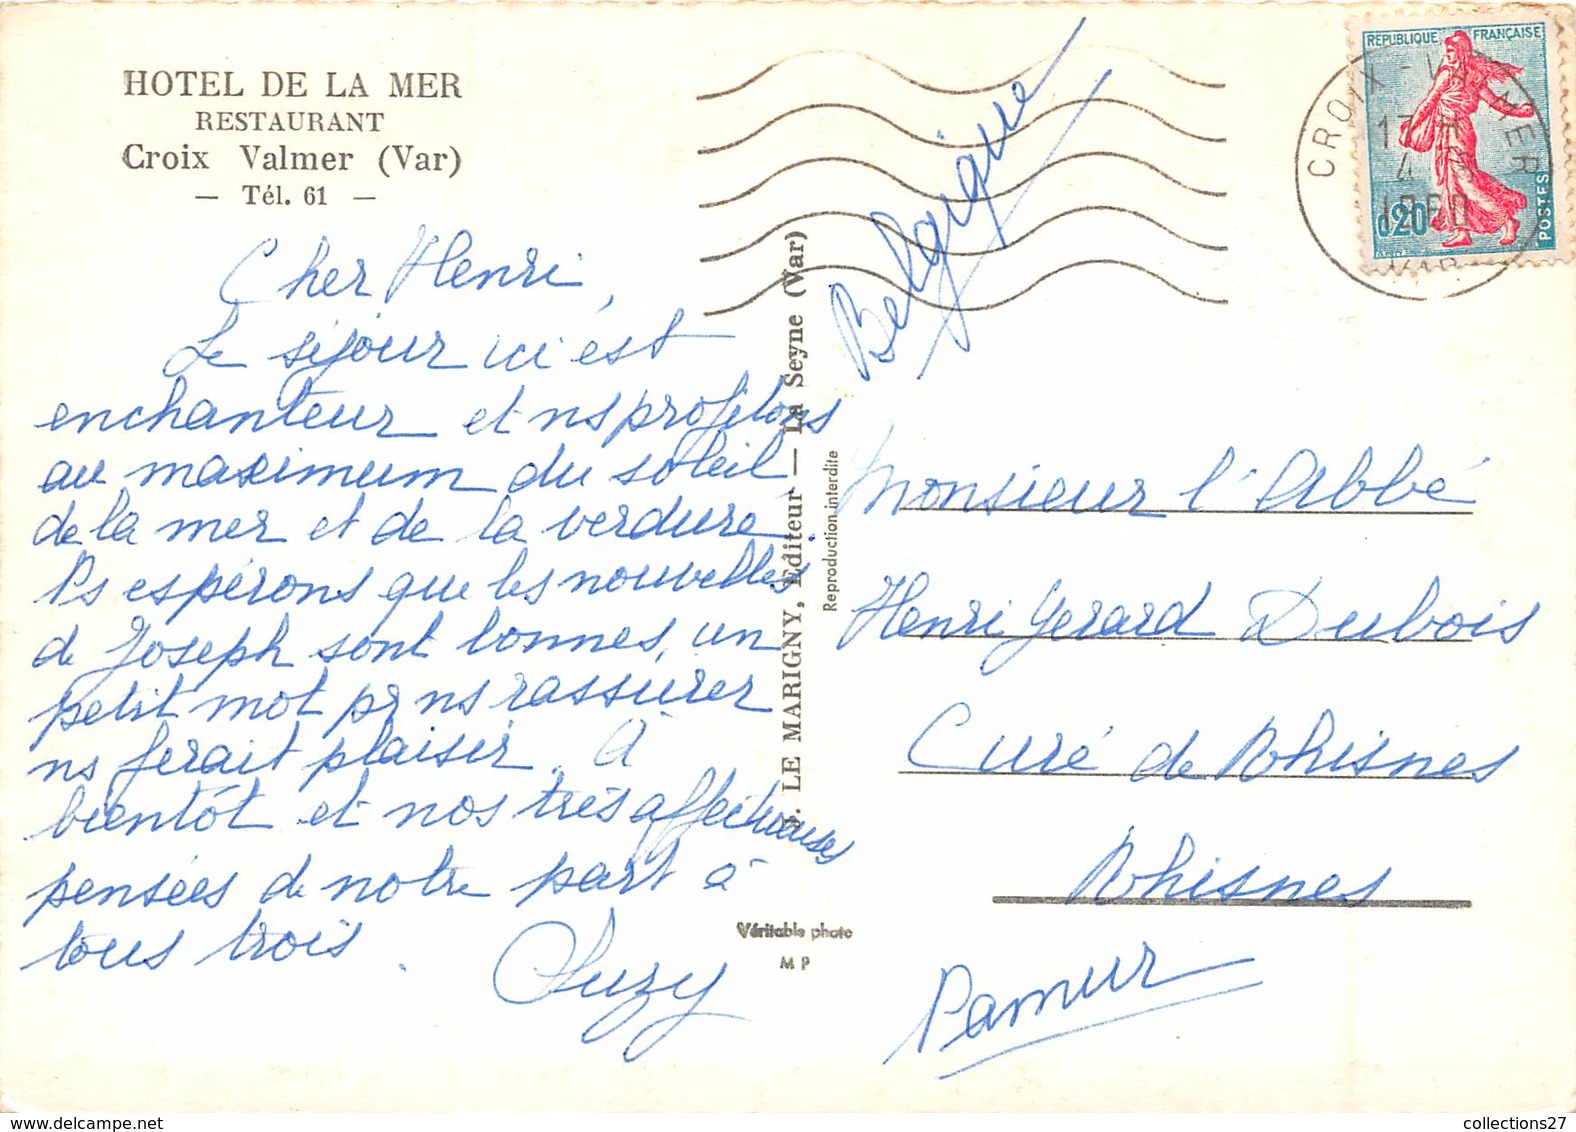 HOTEL DE LA MER
RESTAURANT
Croix Valmer (Var)
— Tél. 61 —
Cher Henri,
Le séjour ici est
enchanteur et ns profitons
au maximum du soleil
de la mer et de la verdure.
Ns espérons que les nouvelles
de Joseph sont bonnes, un
petit mot pr ns rassurer
ns ferait plaisir. À
bientôt et nos très affectueuses
pensées de notre part à
tous trois.
Suzy
LE MARIGNY, Editeur — La Seyne (Var)
Reproduction interdite
Véritable photo
M P
Belgique
REPUBLIQUE FRANÇAISE
0,20
POSTES
CROIX-VALMER
13 H
4
1960
VAR
Monsieur l'Abbé
Henri Gerard Dubois
Curé de Rhisnes
Rhisnes
Namur
collections27